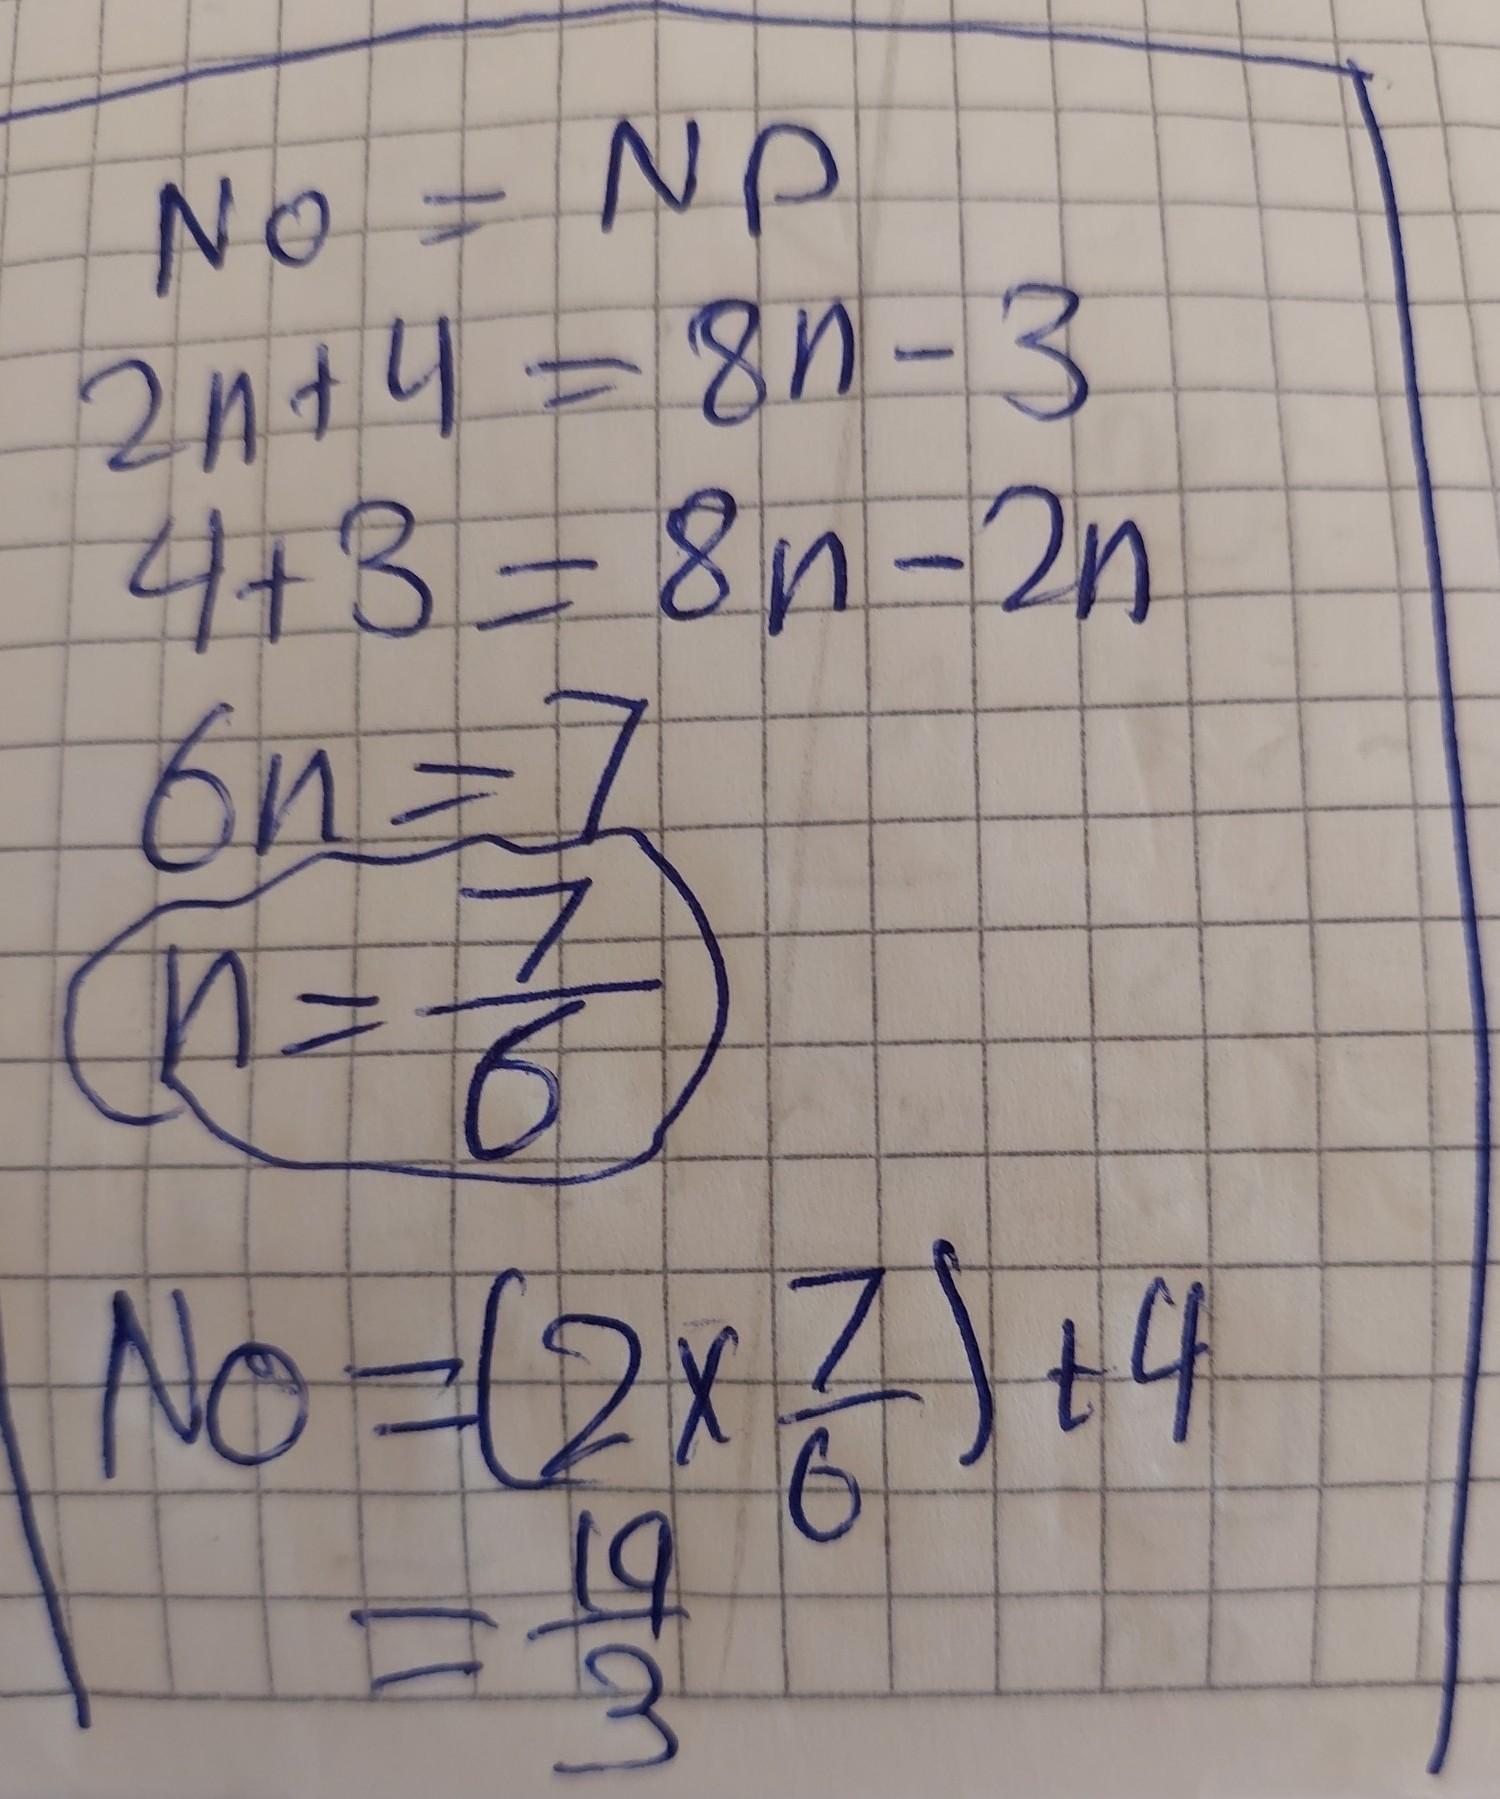 NO = NP
2n+4 = 8n-3
4+3 = 8n-2n
6n=7
n=7/6
NO=(2x7/6)+4
=19/3